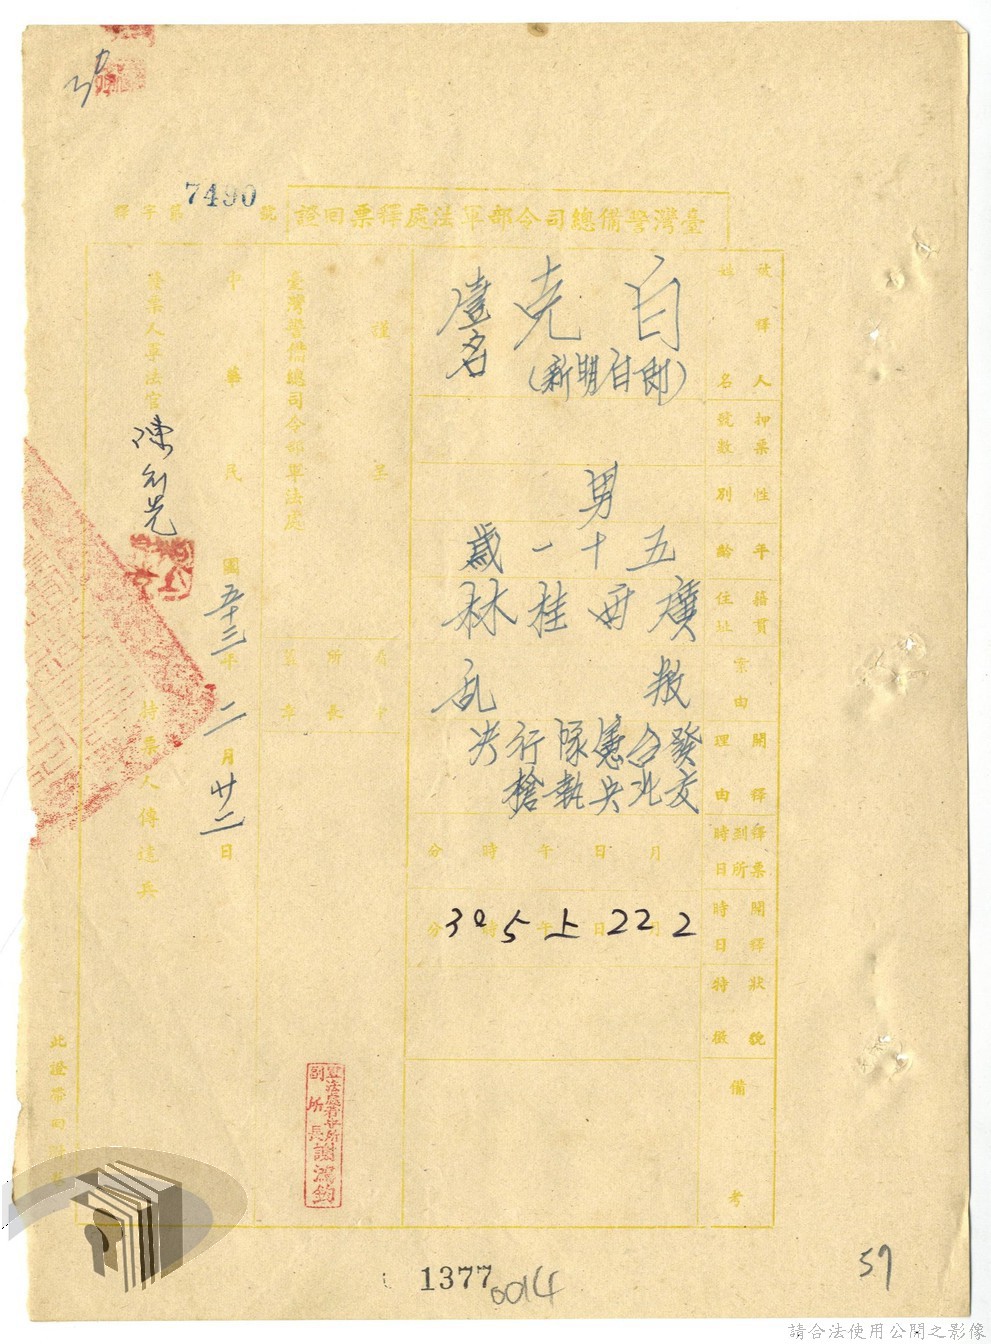 臺灣警備總司令部軍法處釋票回證
釋字第7490號
被釋人姓名
白克
(即白明新)
壹名
押票號數
性別
男
年齡
五十一歲
籍貫住址
廣西桂林
案由
叛乱
開釋理由
發交台北憲央隊執行槍决
釋票到所時日
月 日 午 時 分
開釋時日
2月22日上午5時30分
狀貌特徵
備考
謹呈
臺灣警備總司令部軍法處
看守所所長
蓋章
軍法處看守所
副所長謝鴻鈞
中華民國五十三年二月廿二日
發票人軍法官
持票人傳達兵
1377
0014
57
請合法使用公開之影像